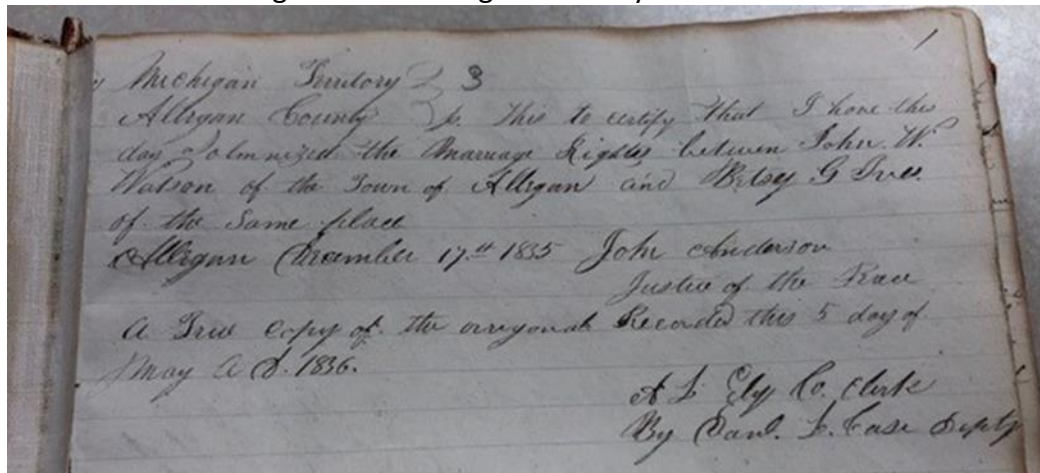 1
Michigan Territory } 3
Allegan County } ss. This to certify that I have this
day Solmnized the Marriage Rights between John W.
Watson of the Town of Allegan and Betsey G Ives.
of the Same place
Allegan December 17th 1835 John Anderson
Justice of the Peace
A True Copy of the orrigonal Recorded this 5 day of
May A D. 1836.
A L Ely Co. Clerk
By Danl. L. Case Depty